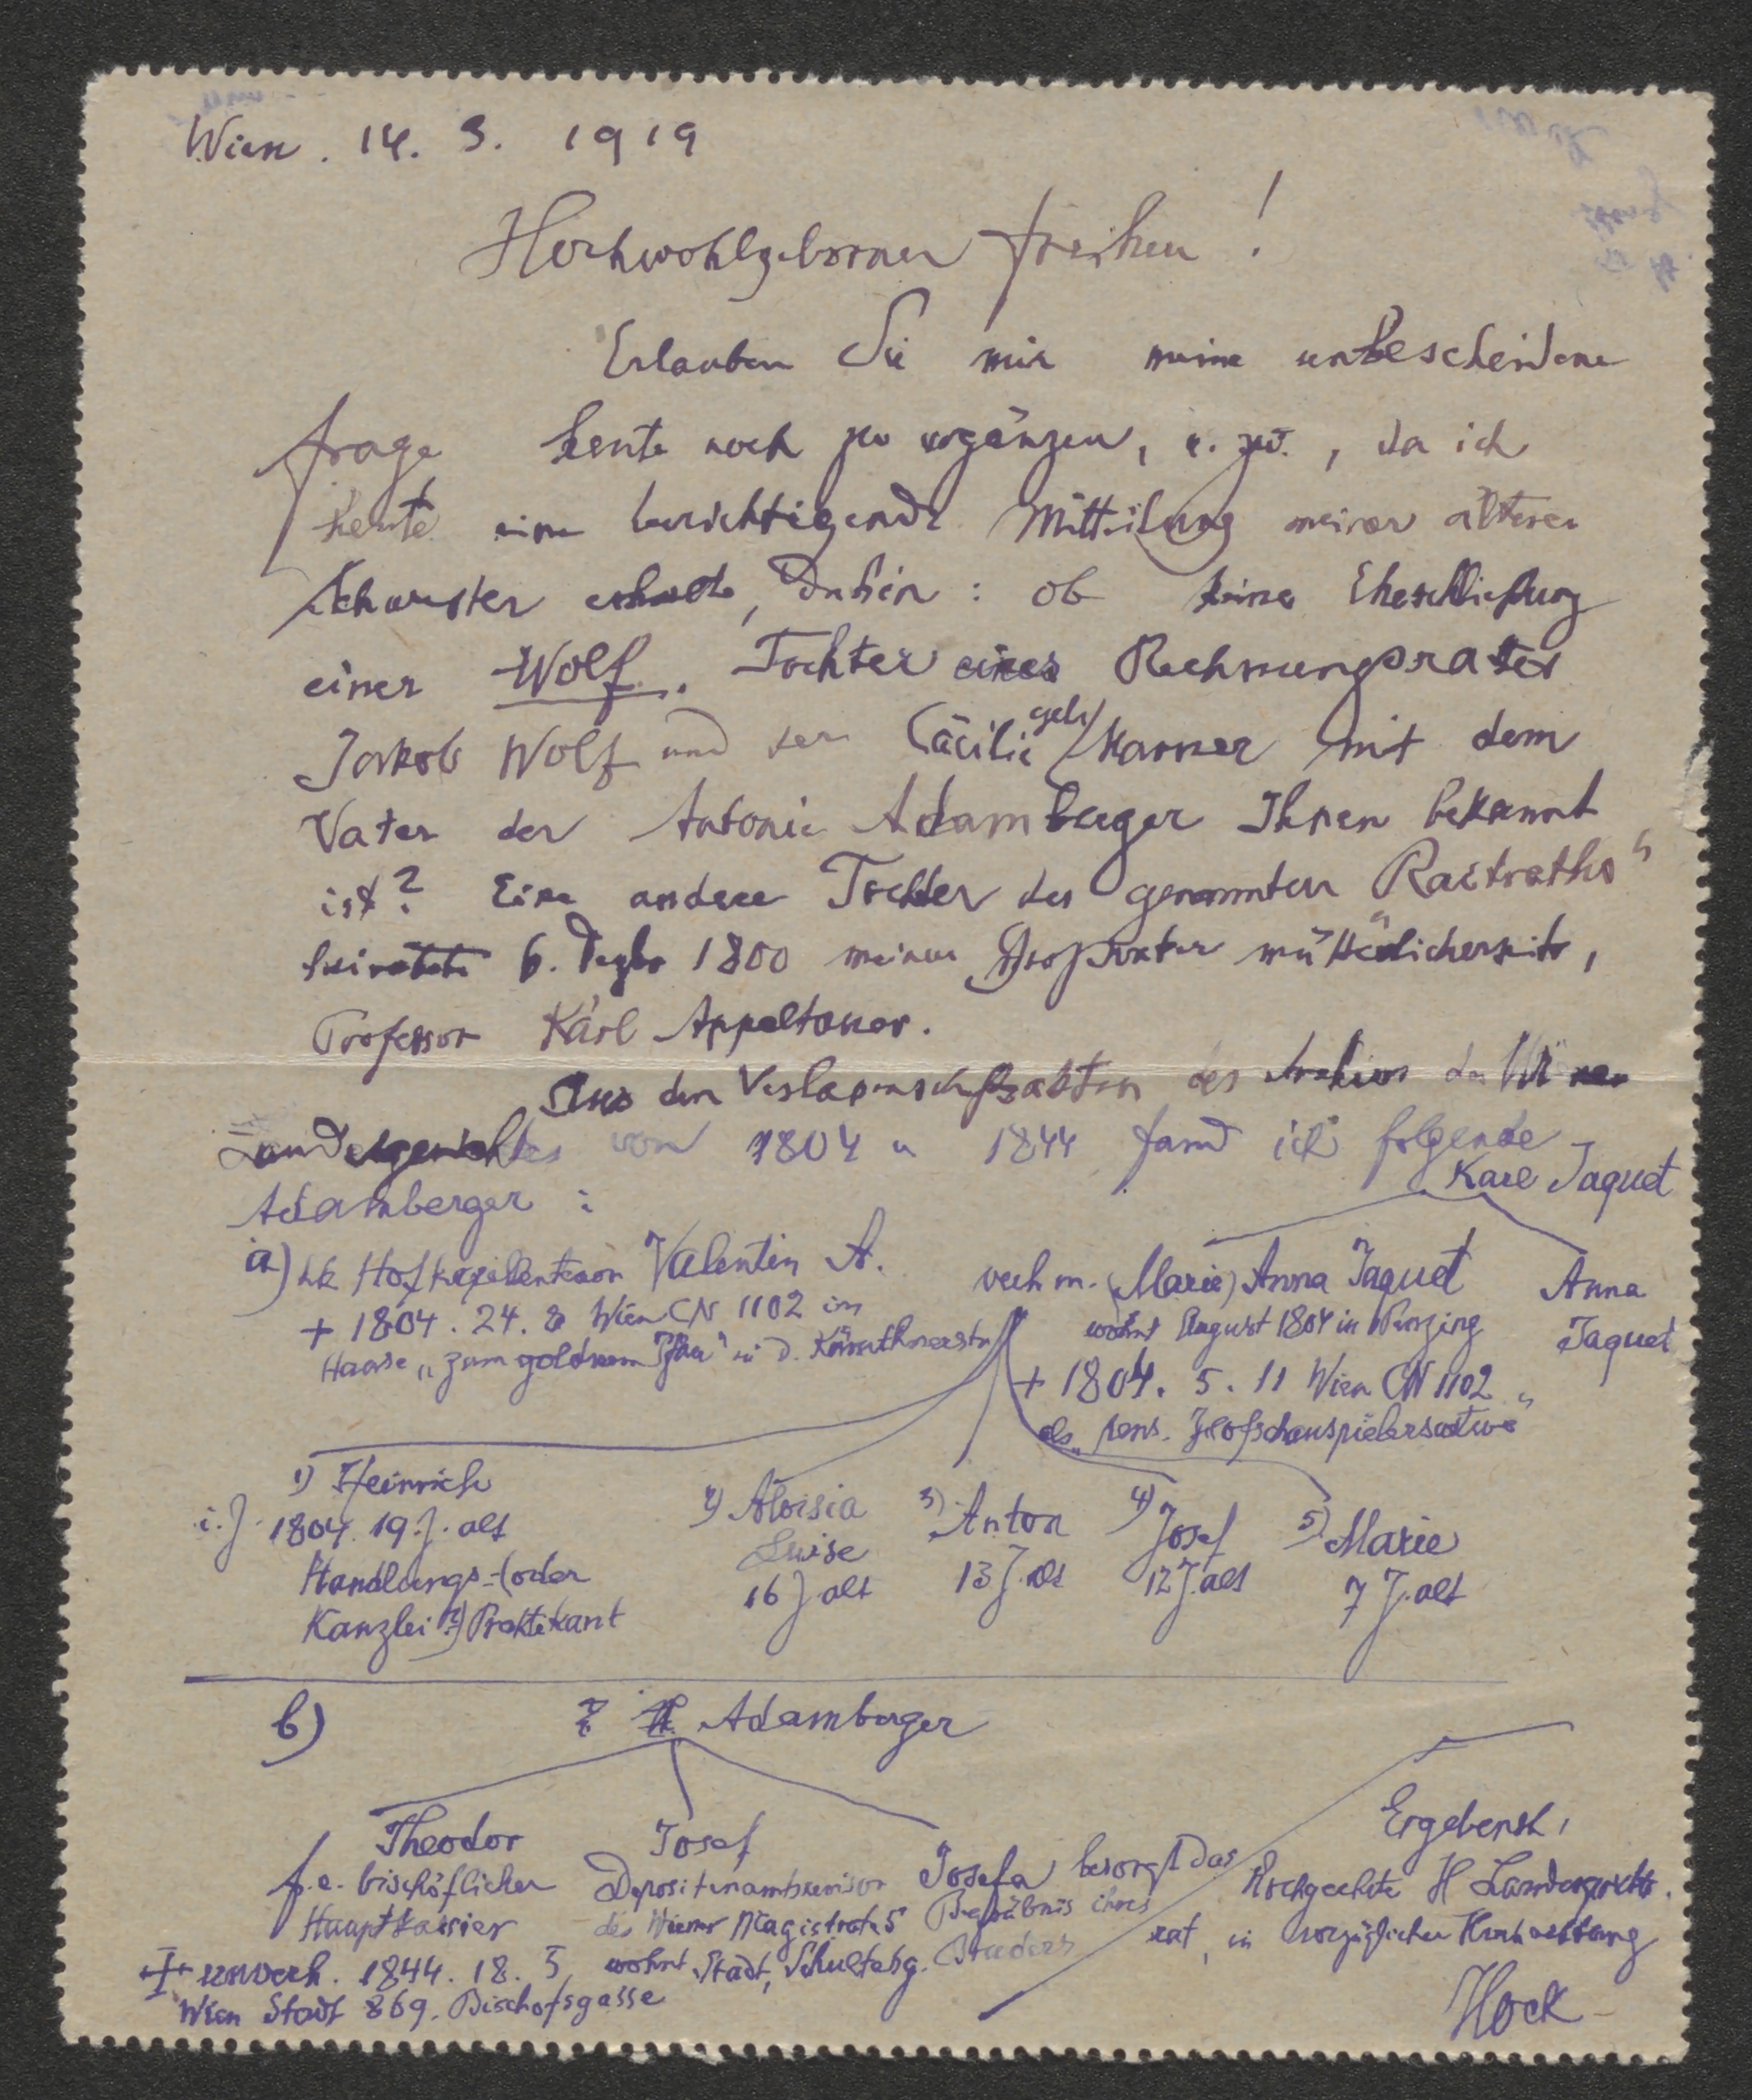 Wien. 14. 3. 1919
Hochwohlgeborner Freiherr!
Erlauben Sie mir meine unbescheidene
Frage heute noch zu ergänzen, u. zw., da ich
heute eine berichtigende Mitteilung meiner älteren
Schwester erhalte, dahin: ob keine Eheschließung
einer Wolf, Tochter eines Rechnungsrates
Jakob Wolf und der Cäcilie geb. Karner mit dem
Vater der Antonie Adamberger Ihnen bekannt
ist? Eine andere Tochter des genannten "Raitraths"
heiratete 6. Dezbr 1800 meinen Großvater mütterlicherseits,
Professor Karl Appeltauer.
Aus den Verlassenschaftsakten des Archivs des Wiener
Landesgerichtes von 1804 u 1844 fand ich folgende
Adamberger:
Karl Jaquet
a) kk Hofkapellentenor Valentin A. verh m. (Marie) Anna Jaquet Anna
+ 1804. 24. 8 Wien CN 1102 im wohnt August 1804 in Penzing Jaquet
Hause "zum goldnen Pfau" in d. Kärnthnerstr
+ 1804. 5. 11 Wien CN 1102
als "pens. Hofschauspielerswitwe"
1) Heinrich 2) Aloisia 3) Anton 4) Josef 5) Marie
i. J. 1804. 19 J. alt Luise 13 J. alt 12 J. alt 7 J. alt
Handlungs-(oder 16 J alt
Kanzlei?) Praktikant
b) ? Adamberger
Theodor Josef Josefa besorgt das
f. e. bischöflicher Depositenamtsrevisor Begräbnis ihres
Hauptkassier des Wiener Magistrates Bruders
+ unverh. 1844. 18. 5 wohnt Stadt, Schultabg.
Wien Stadt 869. Bischofsgasse
Ergebenst,
Hochgeehrter H Landesgerichts
rat, in vorzüglicher Hochachtung
Hock